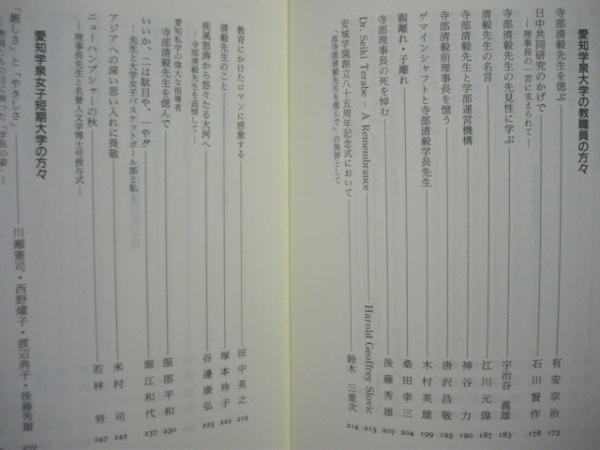 愛知学泉大学の教職員の方々
寺部清毅先生を偲ぶ 有安宗治 173
日中共同研究のかげで
―理事長の一言に支えられて― 石川賢作 178
寺部清毅先生の先見性に学ぶ 宇治谷義雄 183
清毅先生の名言 江川元偉 187
寺部清毅先生と学部運営機構 神谷力 190
寺部清毅前理事長を憶う 唐沢昌敬 195
ゲマインシャフトと寺部清毅学長先生 木村英雄 199
親離れ・子離れ 桑田幸三 204
寺部理事長の死を悼む 後藤秀雄 207
Dr. Seiki Terabe ― A Remembrance Harold Geoffrey Slovic 213
安城学園創立八十五周年記念式において
―「故寺部清毅先生を偲んで」の挨拶として 鈴木三重次 214
教育にかけたロマンに感激する 田中英之 219
清毅先生のこと 塚本玲子 222
疾風怒涛から悠々たる大河へ
―寺部清毅先生を追悼して― 谷邊康弘 225
愛知私学の偉大な指導者
寺部清毅先生を偲んで 服部平和 230
いいか、二は駄目や、一や!!
―先生と大学女子バスケットボール部と私― 堀江和代 237
アジアへの深い思い入れに畏敬 米村司 242
ニューハンプシャーの秋
―理事長先生と名誉人文学博士号授与式― 若林努 247
愛知学泉女子短期大学の方々
「厳しさ」と「やさしさ」 川瀬憲司・西野燿子・渡辺典子・後藤秀爾 252